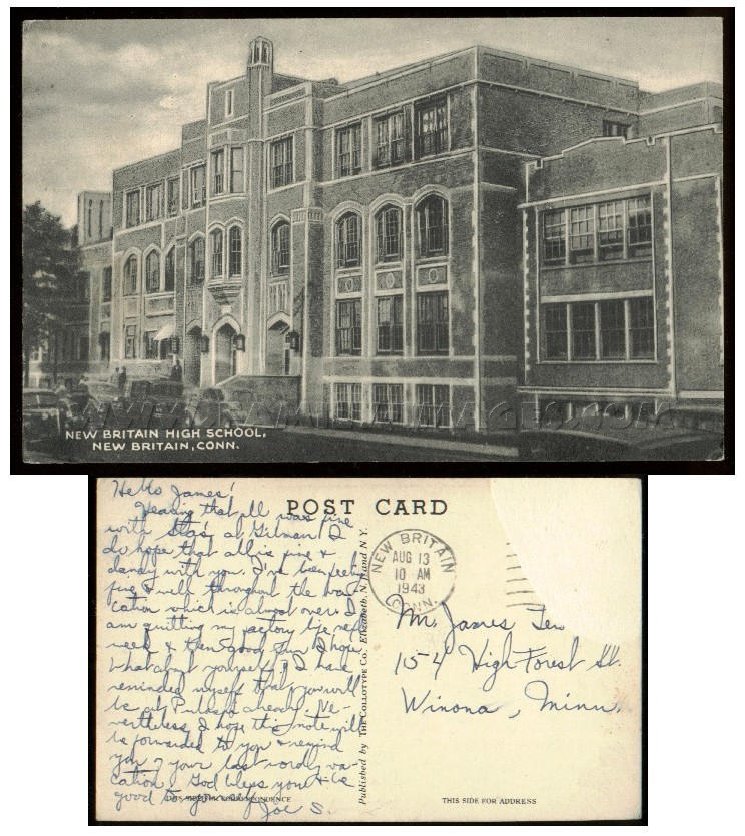 NEW BRITAIN HIGH SCHOOL,
NEW BRITAIN, CONN.
Hello James!
Hearing that all was fine
with Stas' at Gilman I
do hope that all is fine &
dandy with you. I've been feeling
fine & well throughout the va-
cation which is almost over. I
am quitting my factory life next
week & then good fun I hope.
What about yourself? I have
reminded myself that you will
be at already. Ne-
vertheless, I hope this note will
be forwarded to you & remind
you of your last wordly va-
cation. God bless you & be
good to yourself Joe S.
POST CARD
Published by THE COLLOTYPE CO., Elizabeth, N.J. and N.Y.
NEW BRITAIN
AUG 13
10 AM
1943
CONN.
Mr. James
154 High Forest St.
Winona, Minn.
THIS SIDE FOR ADDRESS